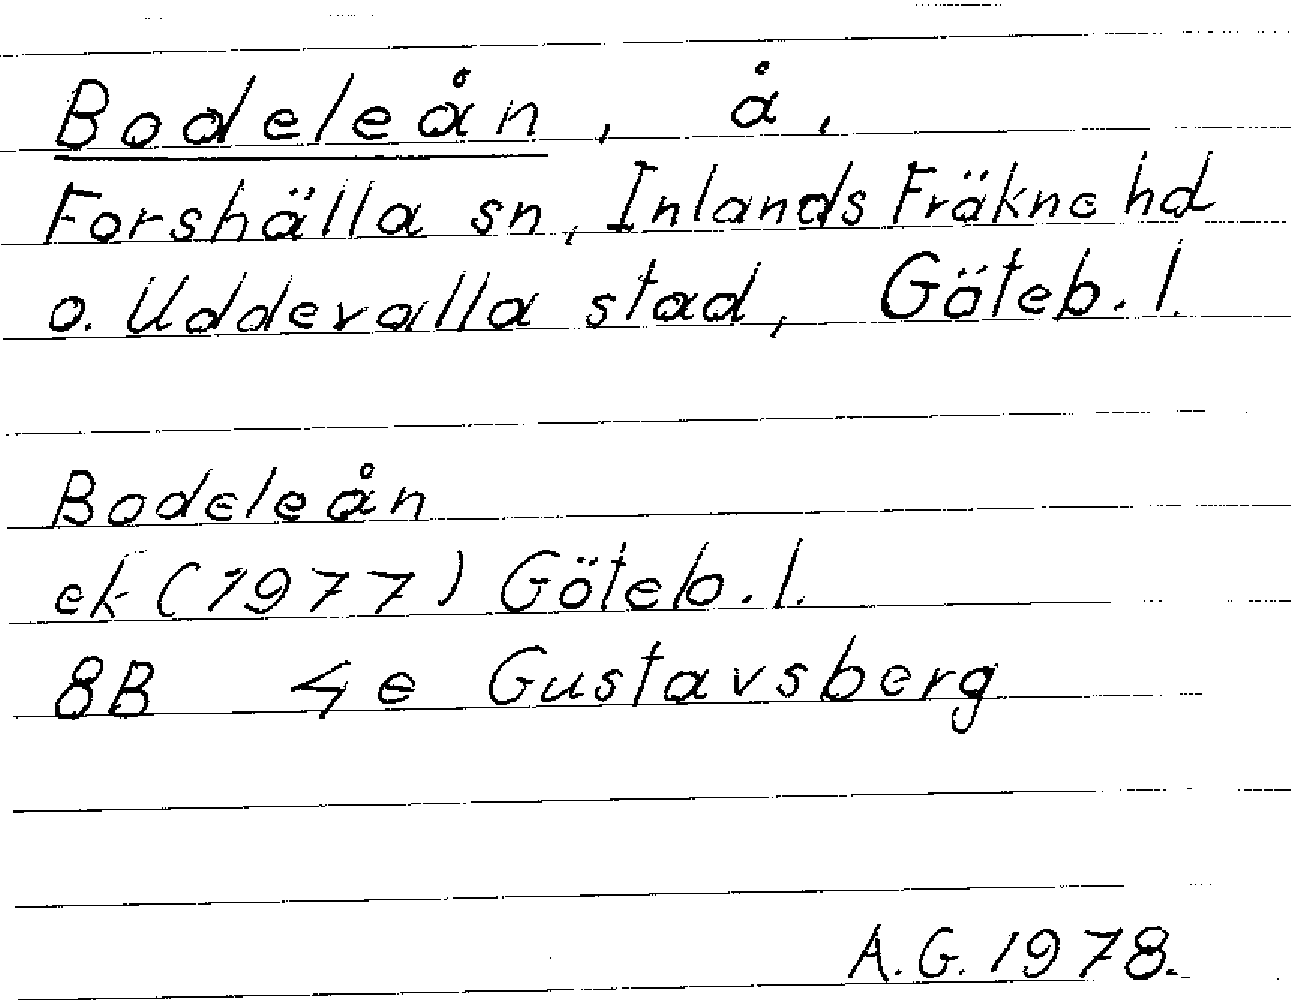 Bodeleån, å,
Forshälla sn, Inlands Fräkne hd
o. Uddevalla stad, Göteb. l.
Bodeleån
ek (1977) Göteb. l.
8B 4e Gustavsberg
A.G. 1978.